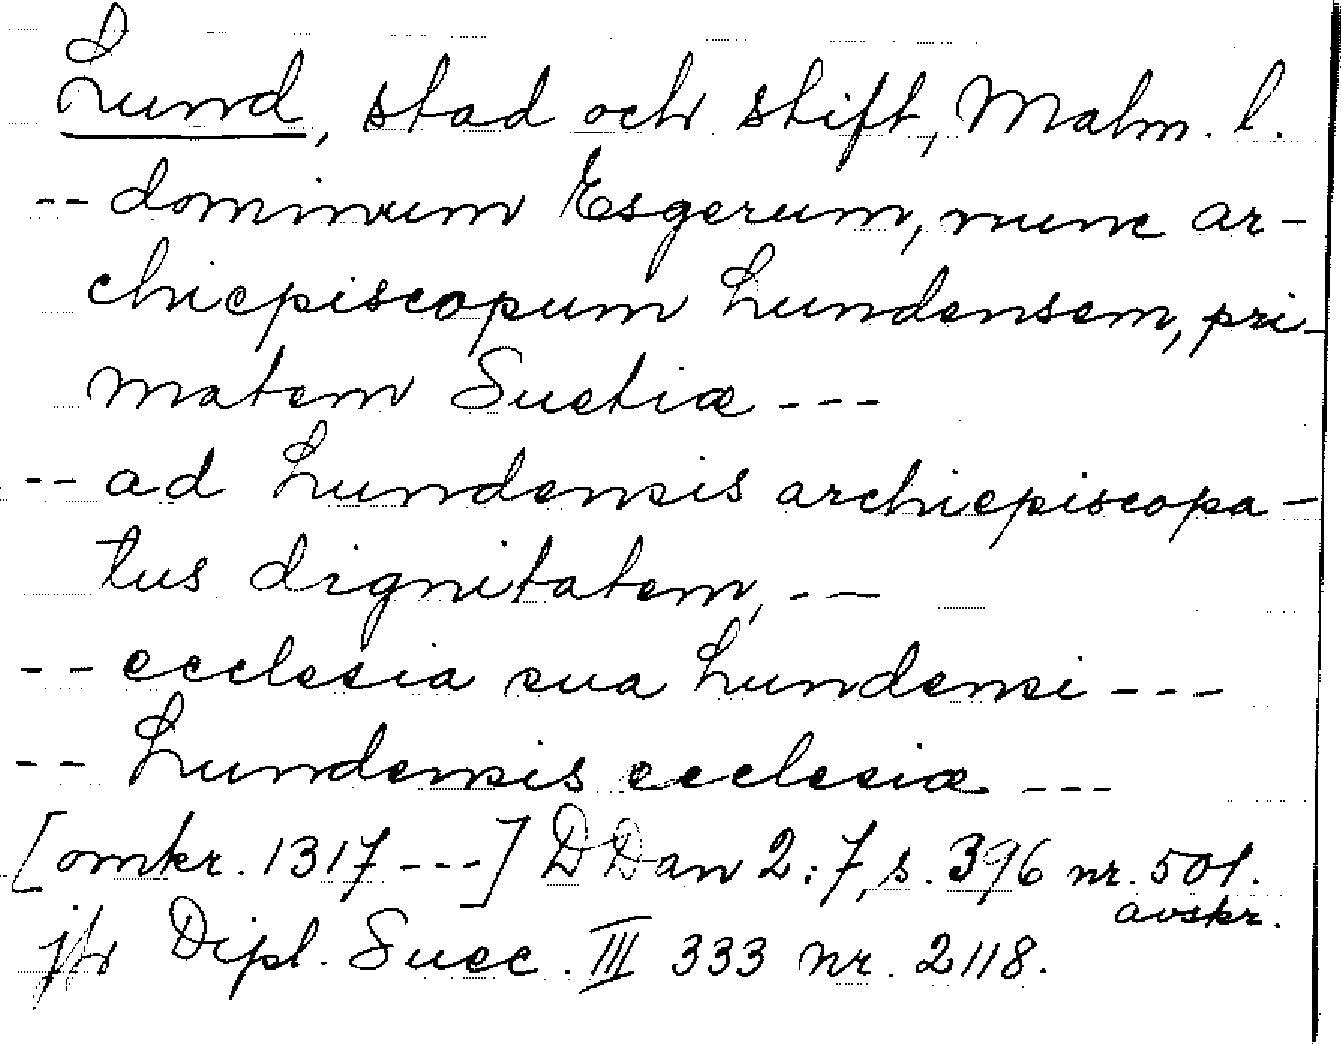 Lund, stad och stift, Malm. l.
-- dominum Esgerum, nunc ar-
chiepiscopum Lundensem, pri-
matem Suetiæ ---
-- ad Lundensis archiepiscopa-
tus dignitatem, ---
-- ecclesia sua Lundensi ---
-- Lundensis ecclesiæ ---
[omkr. 1317 ---] DDan 2:7, s. 396 nr. 501.
avskr.
jfr Dipl. Suec. III 333 nr. 2118.